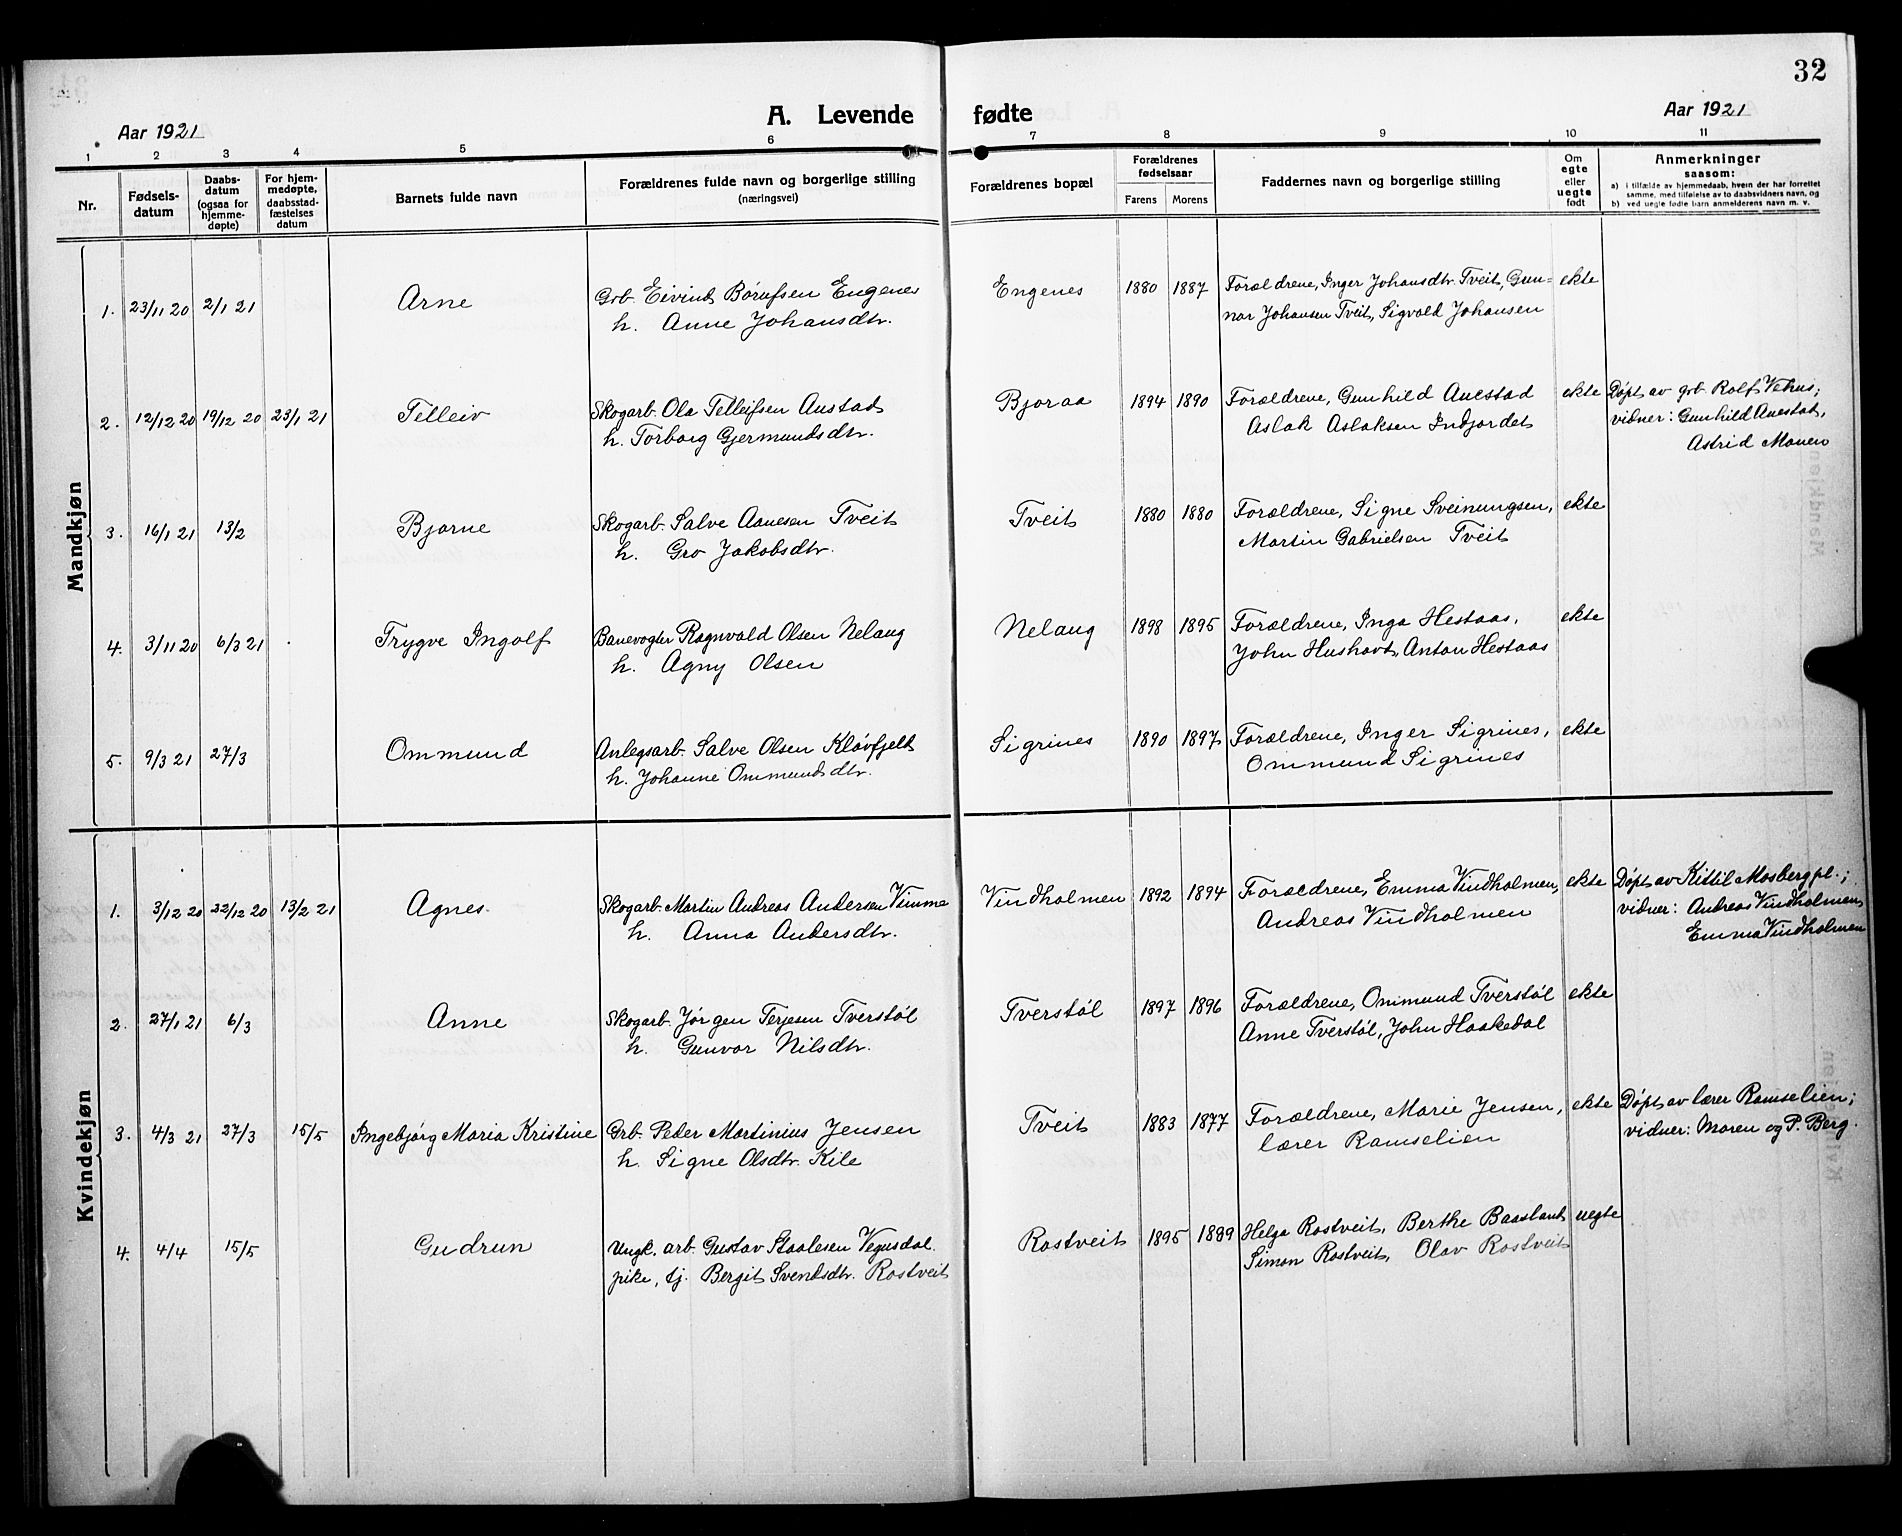 32
Aar 1921
A. Levende fødte
Aar 1921
1 2 3 4 5 6 7 8 9 10 11
Nr.
Fødsels-
datum
Daabs-
datum
(ogsaa for
hjemme-
døpte)
For hjem-
medøpte,
daabsstad-
fæstelses
datum
Barnets fulde navn
Forældrenes fulde navn og borgerlige stilling
(næringsvei)
Forældrenes bopæl
Forældrenes
fødselsaar
Farens Morens
Faddernes navn og borgerlige stilling
Om
egte
eller
uegte
født
Anmerkninger
saasom:
a) i tilfælde av hjemmedaab, hvem der har forrettet
samme, med tilføielse av to daabsvidners navn, og
b) ved uegte fødte barn anmelderens navn m. v.
Mandkjøn
1. 23/11 20 2/1 21 Arne Grb. Eivind Børufsen Engenes Engenes 1880 1887 Forældrene, Inger Johansdtr. Tveit, Gun- ekte
h. Anne Johansdtr. nar Johansen Tveit, Sigvald Johansen
2. 12/12 20 19/12 20 23/1 21 Telleiv Skogarb. Ola Telleifsen Austad Bjoraa 1894 1890 Forældrene, Gunhild Auestad ekte Døpt av grb. Rolf Vehus;
h. Torborg Gjermundsdtr. Aslak Aslaksen Indjordet vidner: Gunhild Auestat,
Astrid Monen
3. 16/1 21 13/2 Bjarne Skogarb. Salve Aanesen Tveit Tveit 1880 1880 Forældrene, Signe Sveinungsen, ekte
h. Gro Jakobsdtr. Martin Gabrielsen Tveit
4. 3/11 20 6/3 21 Trygve Ingolf Banevogter Ragnvald Olsen Nelaug Nelaug 1898 1895 Forældrene, Inga Hestaas, ekte
h. Agny Olsen John Hushovt, Anton Hestaas
5. 9/3 21 27/3 Ommund Anlegsarb. Salve Olsen Kløvfjell Sigrines 1890 1897 Forældrene, Inger Sigrines, ekte
h. Johanne Ommundsdtr. Ommund Sigrines
Kvindekjøn
1. 3/12 20 22/12 20 13/2 21 Agnes Skogarb. Martin Andreas Andersen Vimme Vindholmen 1892 1894 Forældrene, Emma Vindholmen, ekte Døpt av Kittil Mosberg pl.;
h. Anna Andersdtr. Andreas Vindholmen vidner: Andreas Vindholmen,
Emma Vindholmen
2. 27/1 21 6/3 Anne Skogarb. Jørgen Terjesen Tverstøl Tverstøl 1897 1896 Forældrene, Ommund Tverstøl ekte
h. Gunvor Nilsdtr. Anne Tverstøl, John Haakedal
3. 4/3 21 27/3 15/5 Ingebjørg Maria Kristine Grb. Peder Martinius Jensen Tveit 1883 1877 Forældrene, Marie Jensen, ekte Døpt av lærer Ramselien;
h. Signe Olsdtr. Kile lærer Ramselien vidner: Moren og P. Berg.
4. 4/4 15/5 Gudrun Ungk. arb. Gustav Staalesen Vegusdal. Rostveit 1895 1899 Helga Rostveit, Berthe Baasland uegte
pike, tj. Bergit Svendsdtr. Rostveit Simon Rostveit, Olav Rostveit